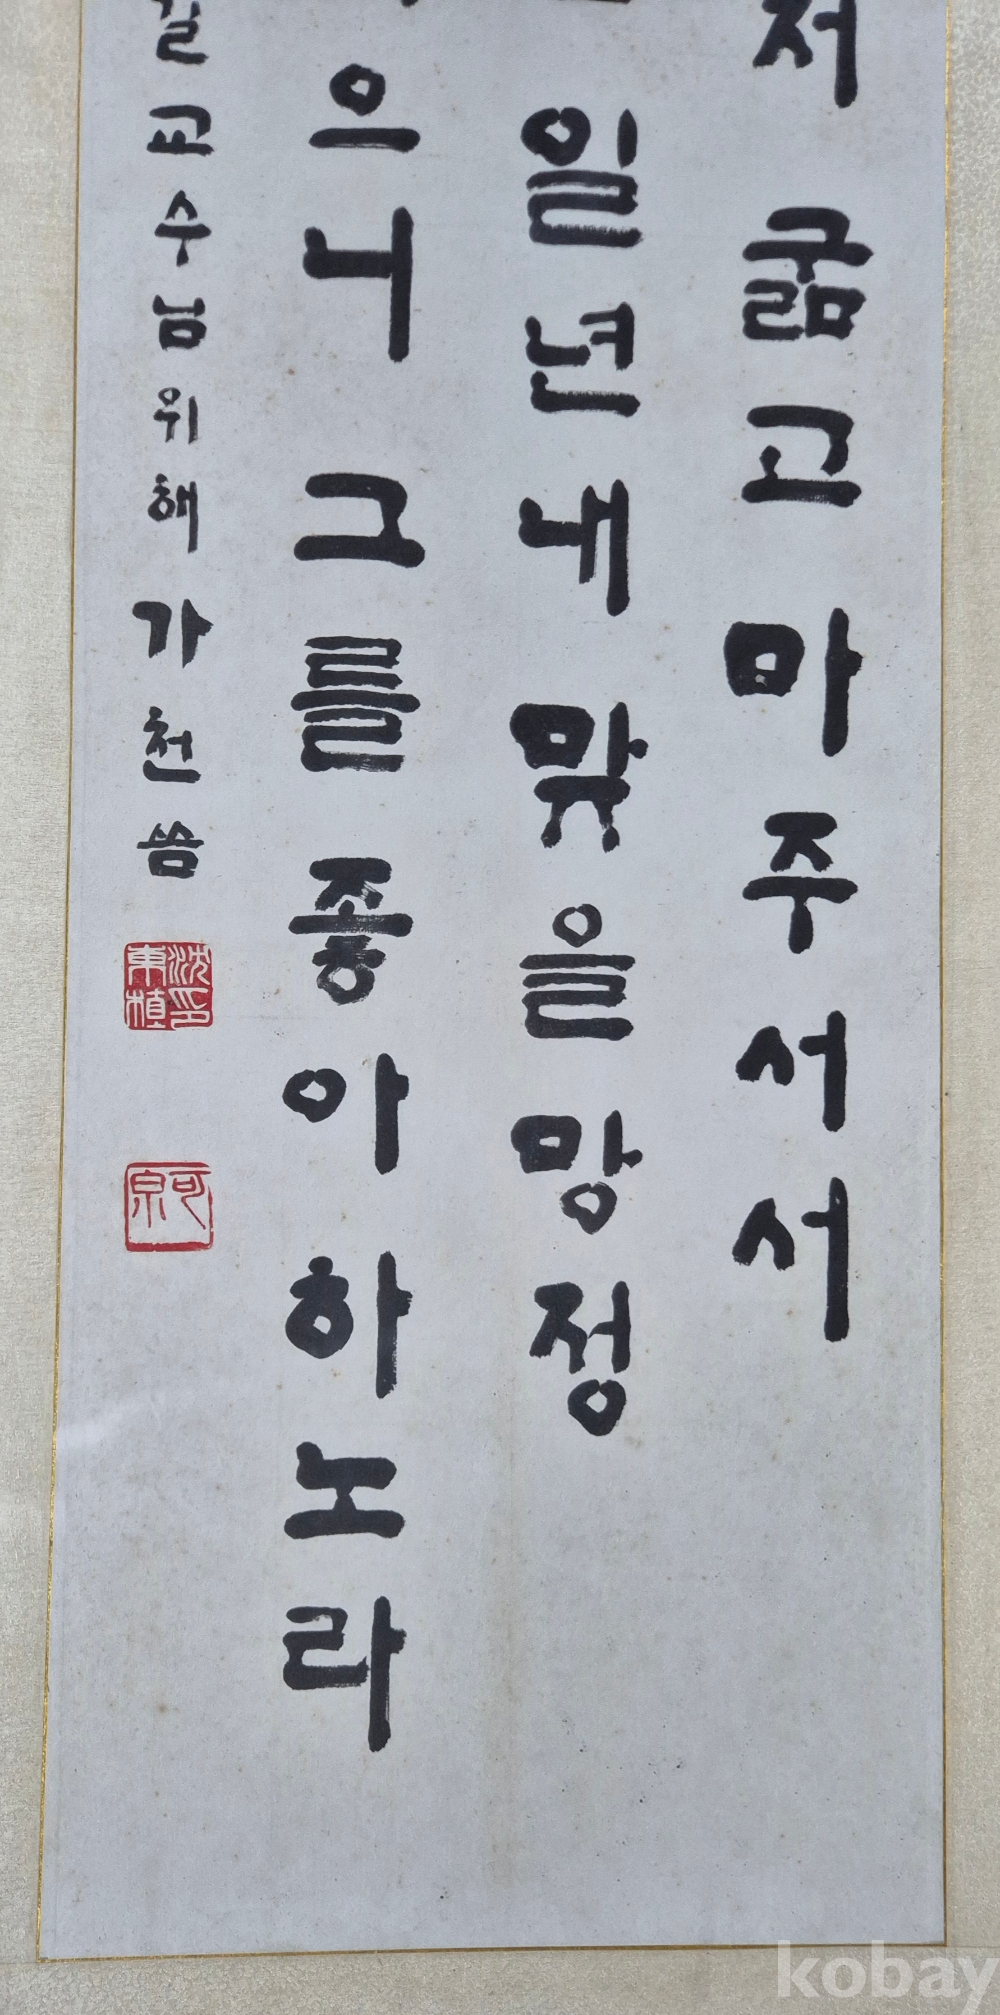 저 굶고 마주서서
일년내 맞을망정
으니 그를 좋아하노라
길교수님위해 가천 씀
沈印東植
kobay